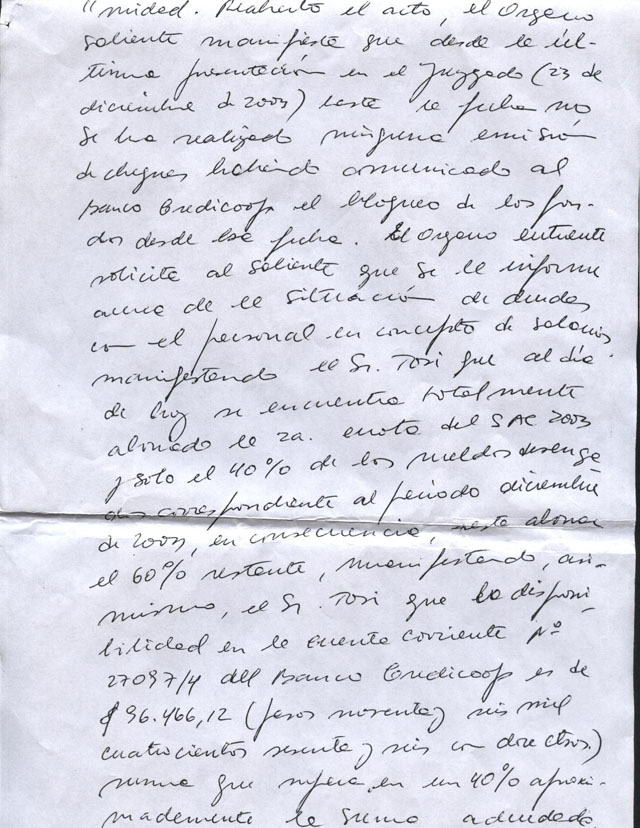 "midad. Reabierto el acto, el Organo
saliente manifiesta que desde la úl-
tima presentación en el Juzgado (23 de
diciembre de 2003) hasta la fecha no
se ha realizado ninguna emisión
de cheques habiendo comunicado al
Banco Credicoop el bloqueo de los fon-
dos desde esa fecha. El Organo entrante
solicita al saliente que se le informe
acerca de la situación de deudas
con el personal en concepto de salarios,
manifestando el Sr. Tosi que al día
de hoy se encuentra totalmente
abonado la 2a. cuota del SAC 2003
y solo el 40% de los sueldos devenga
dos correspondiente al período diciembre
de 2003, en consecuencia, resta abonar
el 60% restante, manifestando, asi-
mismo, el Sr. Tosi que la disponi-
bilidad en la cuenta corriente Nº
27097/4 del Banco Credicoop es de
$ 96.466,12 (pesos noventa y seis mil
cuatrocientos sesenta y seis con doce ctvos.)
suma que supera en un 40% aproxi-
madamente la suma adeudada